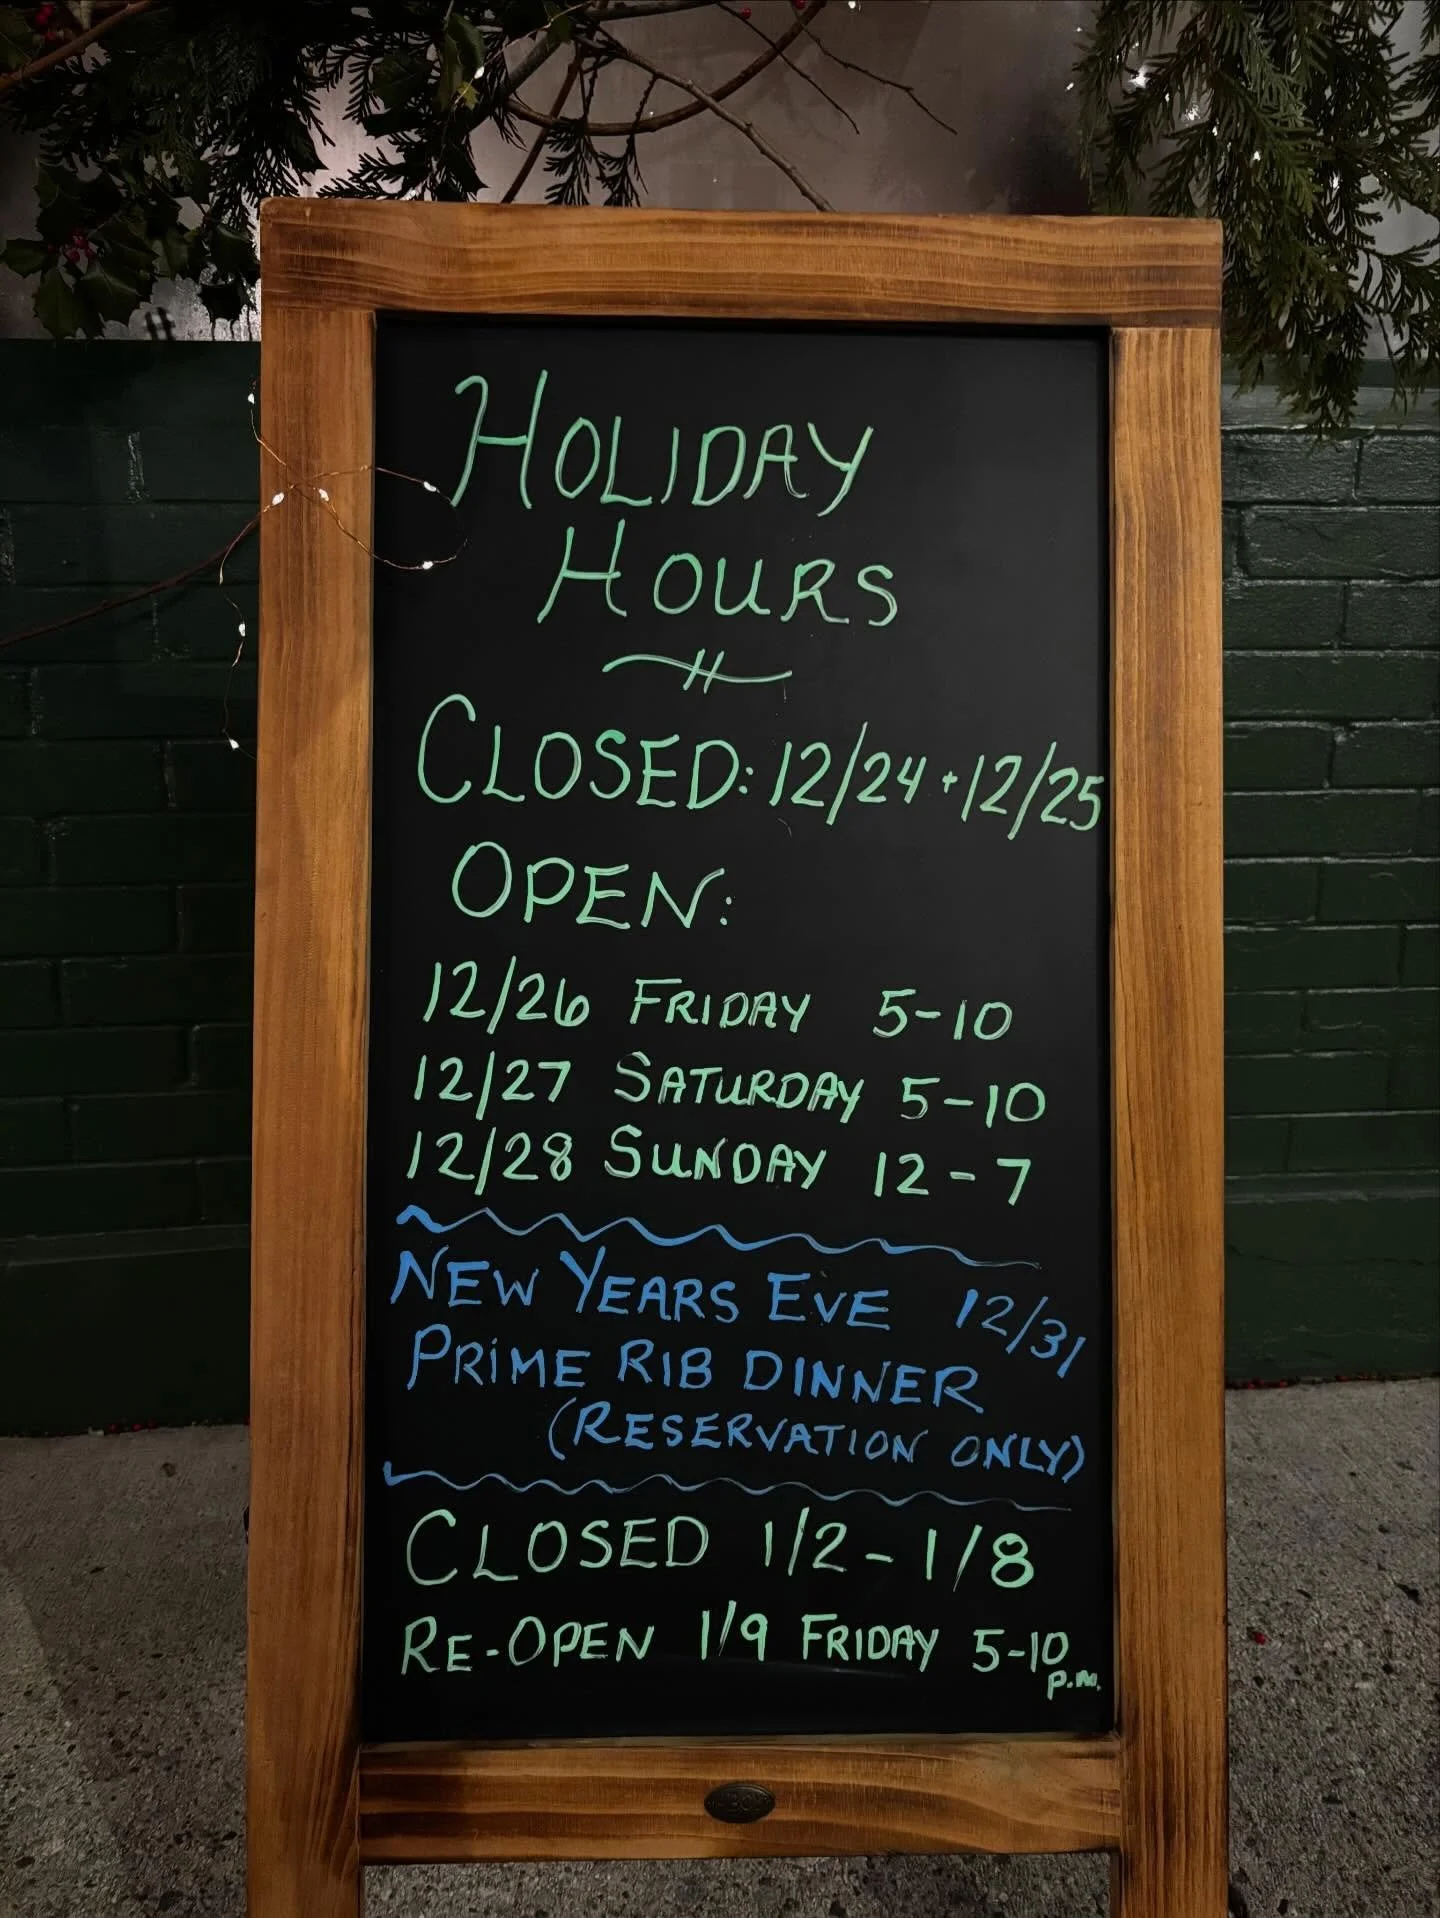 HOLIDAY
HOURS
CLOSED: 12/24 + 12/25
OPEN:
12/26 FRIDAY 5-10
12/27 SATURDAY 5-10
12/28 SUNDAY 12-7
NEW YEARS EVE 12/31
PRIME RIB DINNER
(RESERVATION ONLY)
CLOSED 1/2 - 1/8
RE-OPEN 1/9 FRIDAY 5-10
P.M.